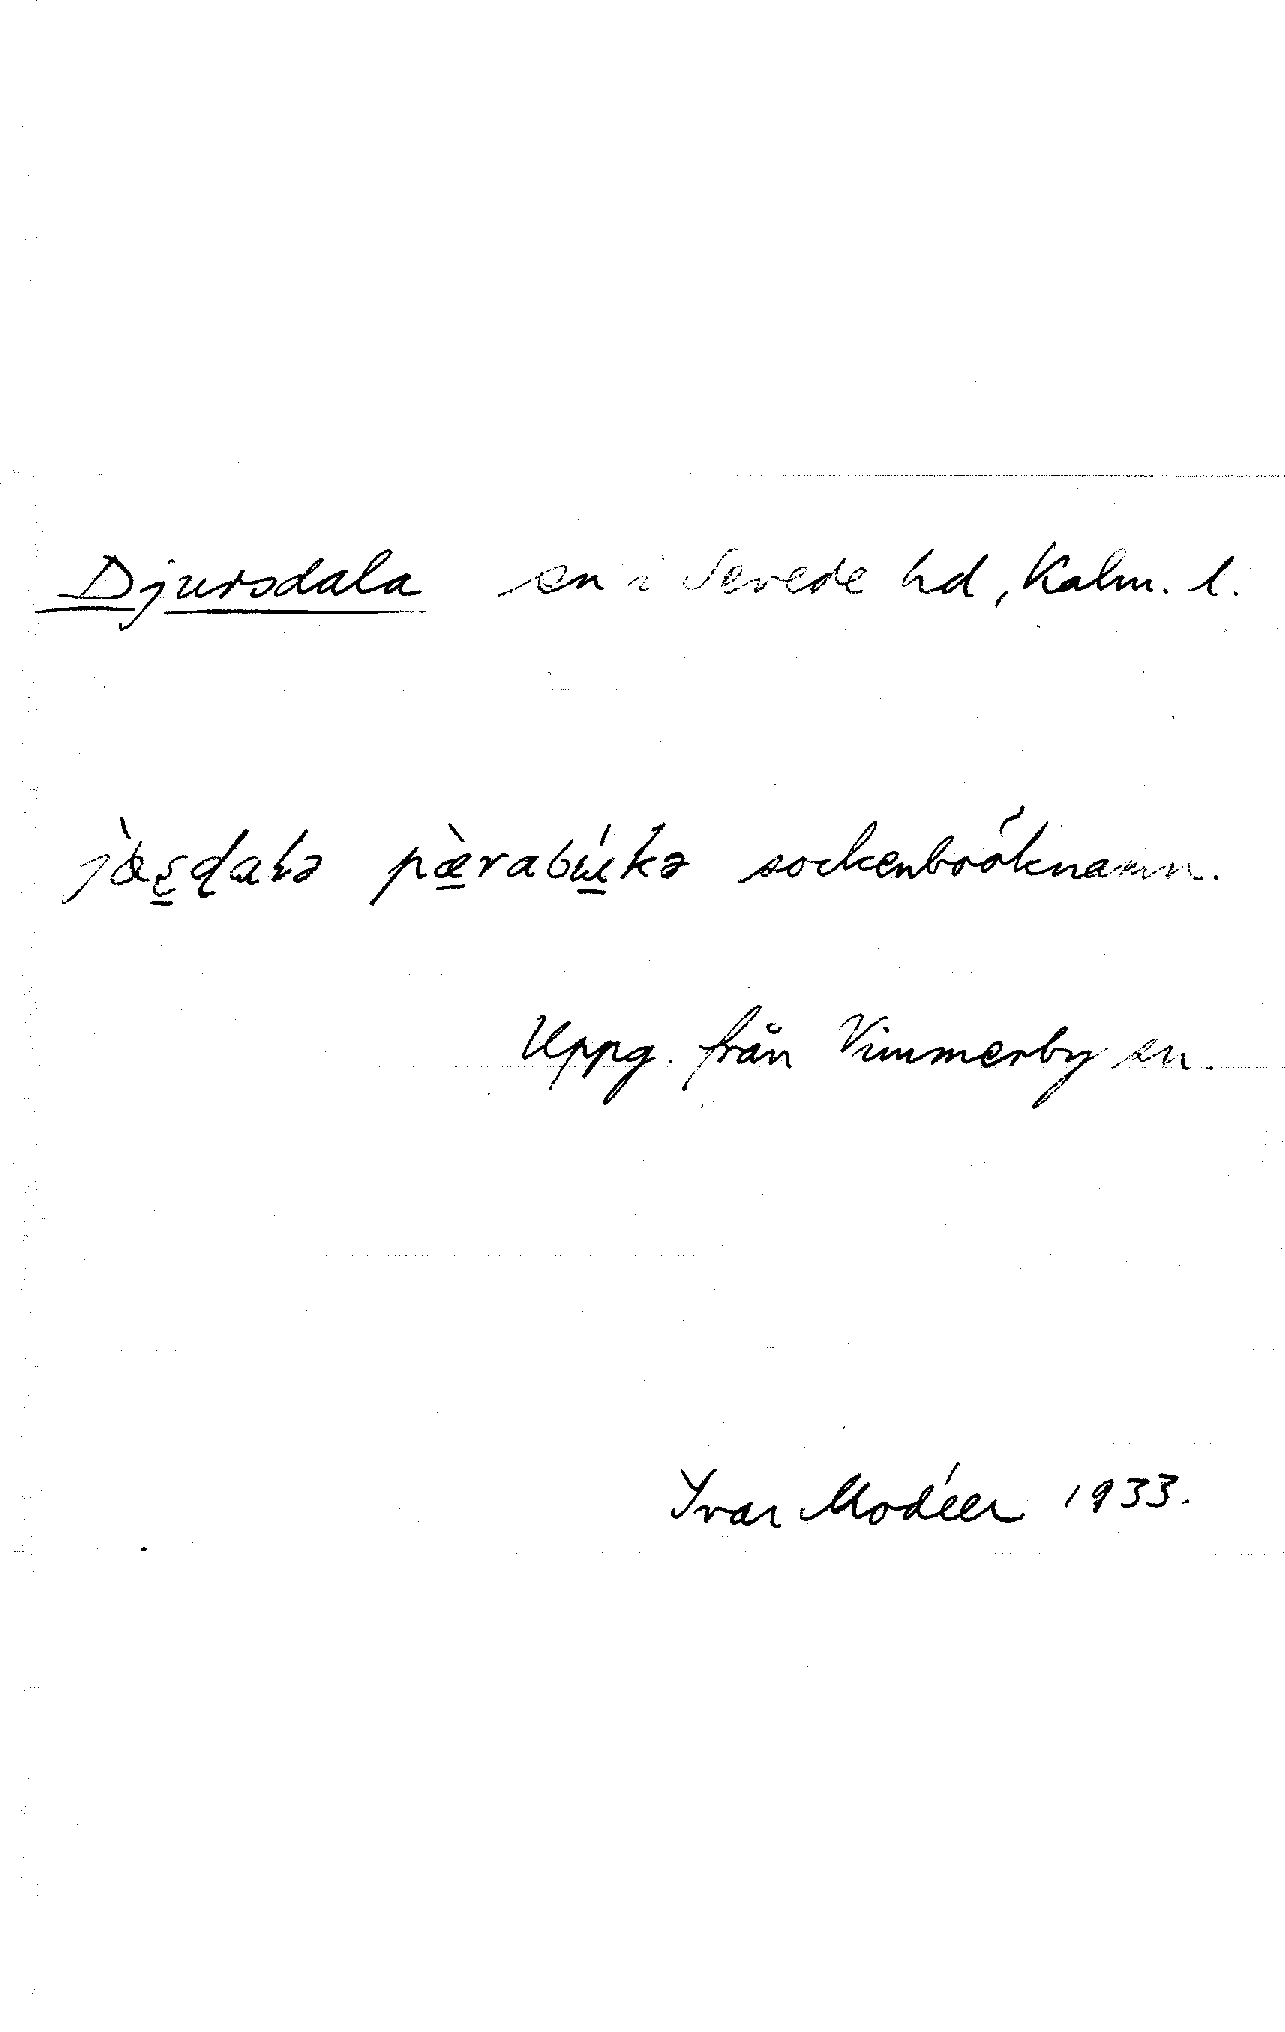 Djursdala sn i Sevede hd, Kalm. l.
jæ̀s̠ɖaɫə pæ̠̀rabú̠kə sockenboöknamn.
Uppg. från Vimmerby sn.
Yvar Modéer 1933.